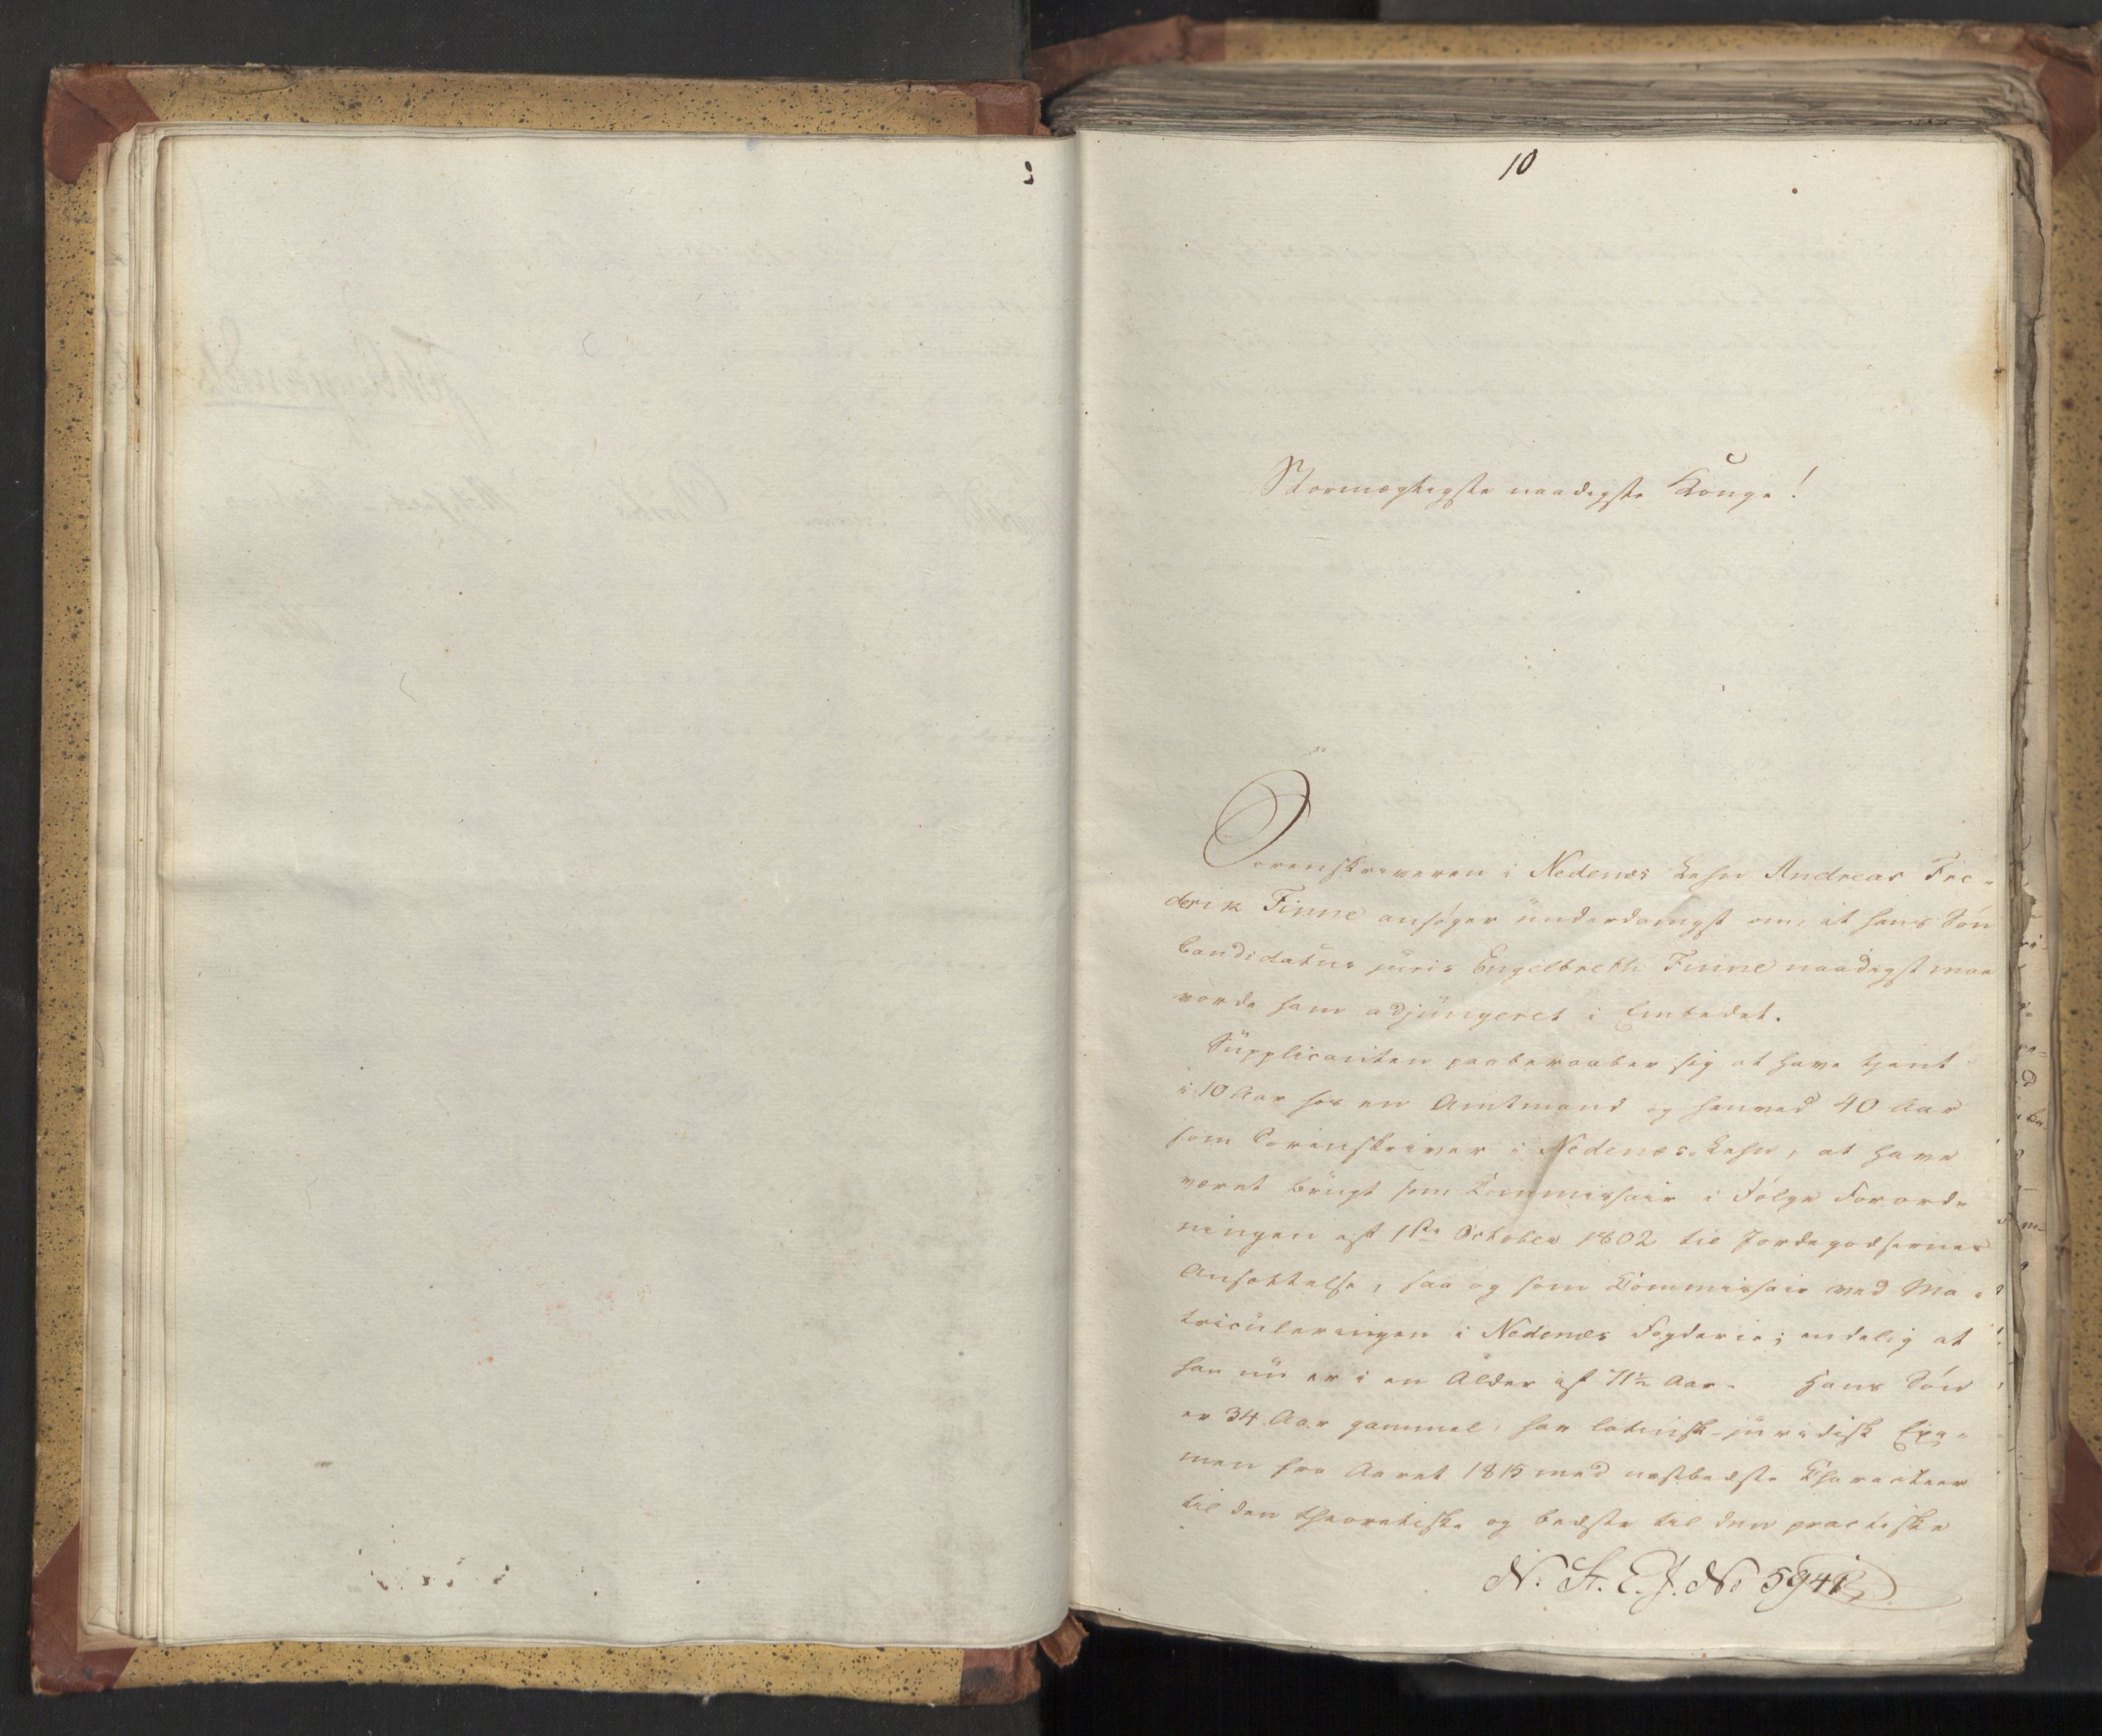 10
Stormægtigste naadigste Konge!
Sorenskriveren i Nedenæs Lehn Andreas Fre-
derik Finne ansøger underdanigst om, at hans Søn
Candidatus juris Engelbreth Finne naadigst maa
vorde ham adjungeret i Embedet.
Supplicanten paaberaaber sig at have tjent
i 10 Aar hos en Amtmand og henved 40 Aar
som Sorenskriver i Nedenæs Lehn, at have
været brugt som Commissair i Følge Forord-
ningen af 1ste October 1802 til Jordegodsernes
Ansættelse, saa og som Commissair ved Ma-
triculeringen i Nedenæs Fogderie; endelig at
han nu er i en Alder af 71½ Aar. Hans Søn
er 34 Aar gammel, har latinsk-juridisk Exa-
men fra Aaret 1815 med næstbedste Character
til den theoretiske og bedste til den practiske
N. St. E. J. No 5941